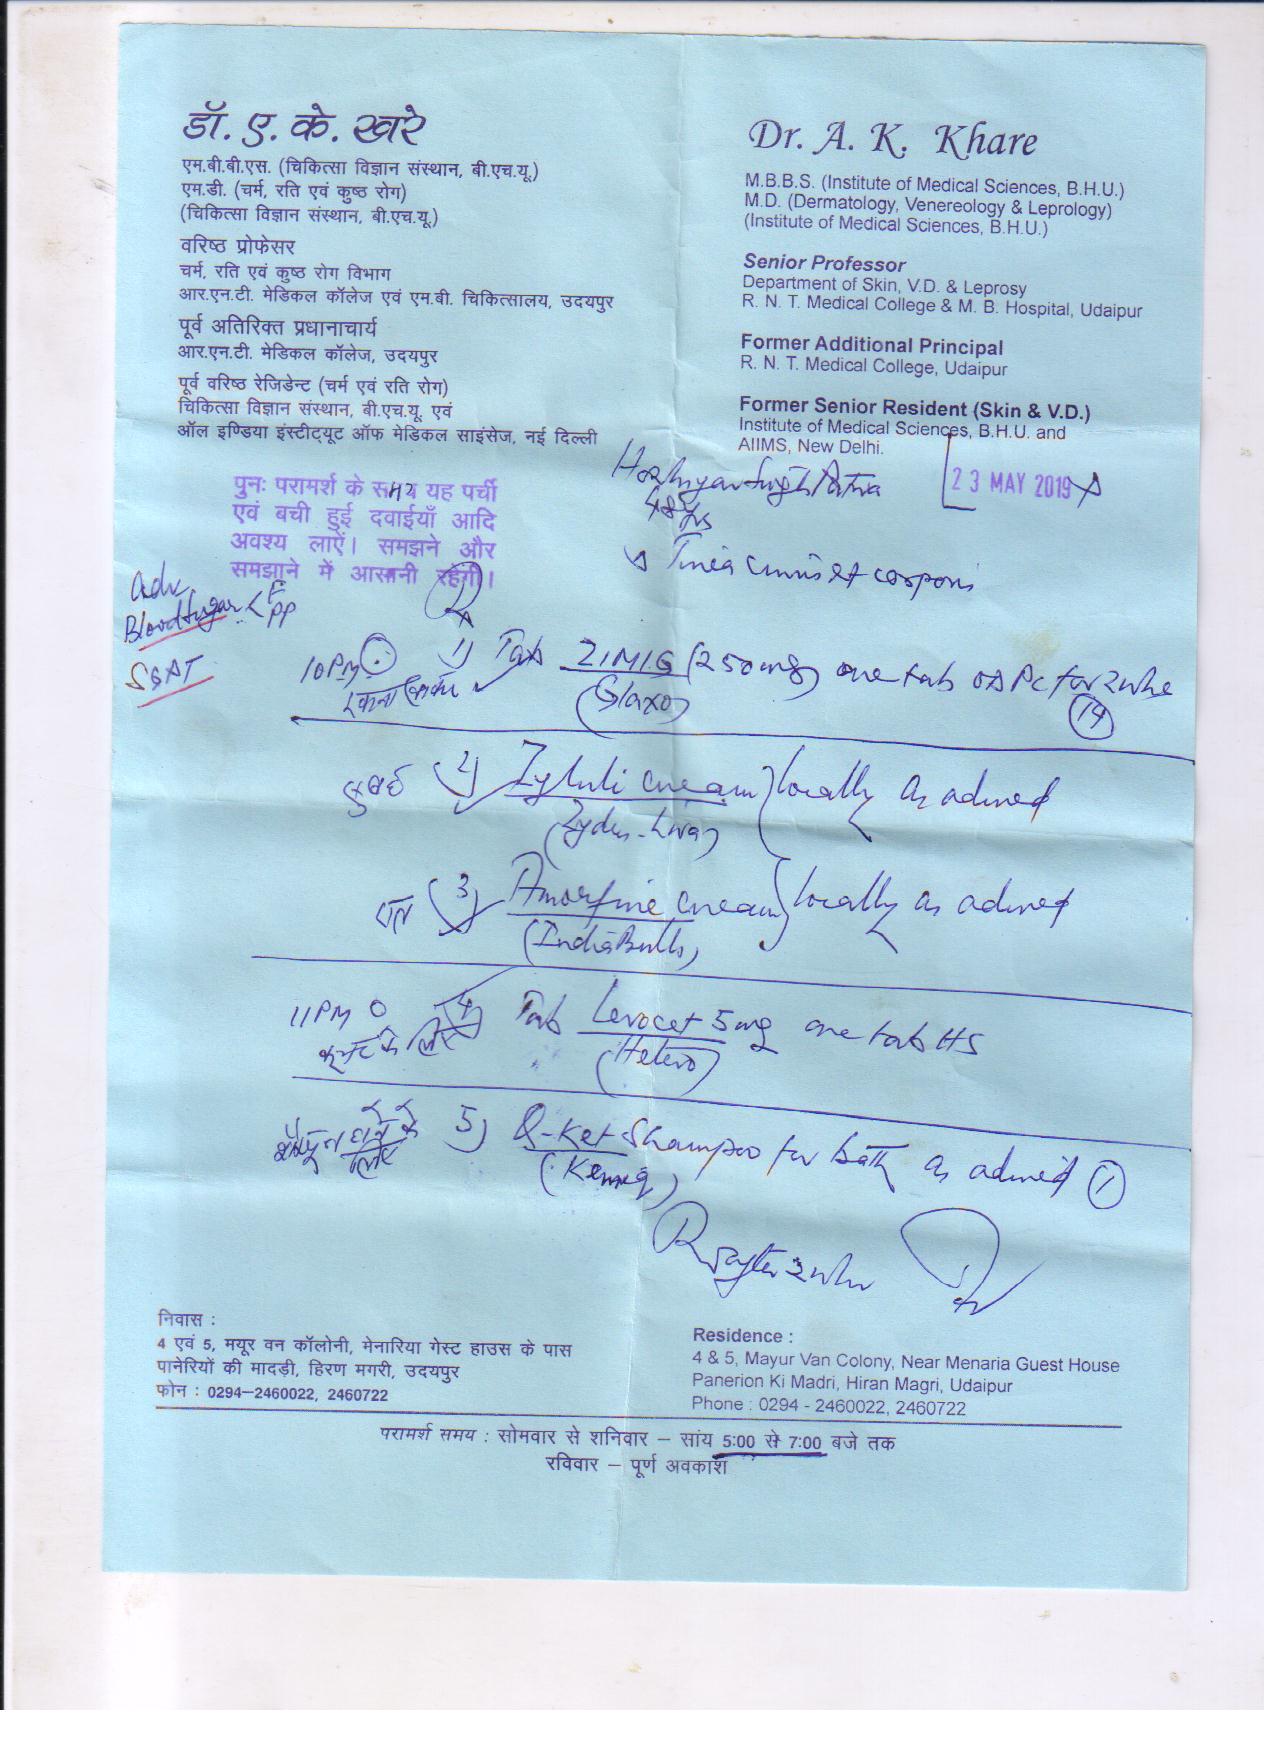 डॉ. ए. के. खरे
एम.बी.बी.एस. (चिकित्सा विज्ञान संस्थान, बी.एच.यू.)
एम.डी. (चर्म, रति एवं कुष्ठ रोग)
(चिकित्सा विज्ञान संस्थान, बी.एच.यू.)
वरिष्ठ प्रोफेसर
चर्म, रति एवं कुष्ठ रोग विभाग
आर.एन.टी. मेडिकल कॉलेज एवं एम.बी. चिकित्सालय, उदयपुर
पूर्व अतिरिक्त प्रधानाचार्य
आर.एन.टी. मेडिकल कॉलेज, उदयपुर
पूर्व वरिष्ठ रेजिडेन्ट (चर्म एवं रति रोग)
चिकित्सा विज्ञान संस्थान, बी.एच.यू. एवं
ऑल इण्डिया इंस्टीट्यूट ऑफ मेडिकल साइंसेज, नई दिल्ली
Dr. A. K. Khare
M.B.B.S. (Institute of Medical Sciences, B.H.U.)
M.D. (Dermatology, Venereology & Leprology)
(Institute of Medical Sciences, B.H.U.)
Senior Professor
Department of Skin, V.D. & Leprosy
R. N. T. Medical College & M. B. Hospital, Udaipur
Former Additional Principal
R. N. T. Medical College, Udaipur
Former Senior Resident (Skin & V.D.)
Institute of Medical Sciences, B.H.U. and
AIIMS, New Delhi.
पुनः परामर्श के समय यह पर्ची
एवं बची हुई दवाईयाँ आदि
अवश्य लाऐं। समझने और
समझाने में आसानी रहेगी।
23 MAY 2019
48 yrs
Tinea cruris et corporis
Adv
Blood Sugar < F
PP
SGPT
10PM 1) Tab ZIMIG (250mg) one tab OD PC for 2 wks
(Glaxo) 14
सुबह 2) cream } locally as advised
(Zydus-Liva)
रात 3) Amorfine cream } locally as advised
(IndiaBulls)
11PM 4) Tab Levocet 5mg one tab HS
(Hetero)
5) Q-Ket Shampoo for bath as advised 1
R after 2 wks
निवास :
4 एवं 5, मयूर वन कॉलोनी, मेनारिया गेस्ट हाउस के पास
पानेरियों की मादड़ी, हिरण मगरी, उदयपुर
फोन : 0294-2460022, 2460722
Residence :
4 & 5, Mayur Van Colony, Near Menaria Guest House
Panerion Ki Madri, Hiran Magri, Udaipur
Phone : 0294 - 2460022, 2460722
परामर्श समय : सोमवार से शनिवार – सांय 5:00 से 7:00 बजे तक
रविवार – पूर्ण अवकाश